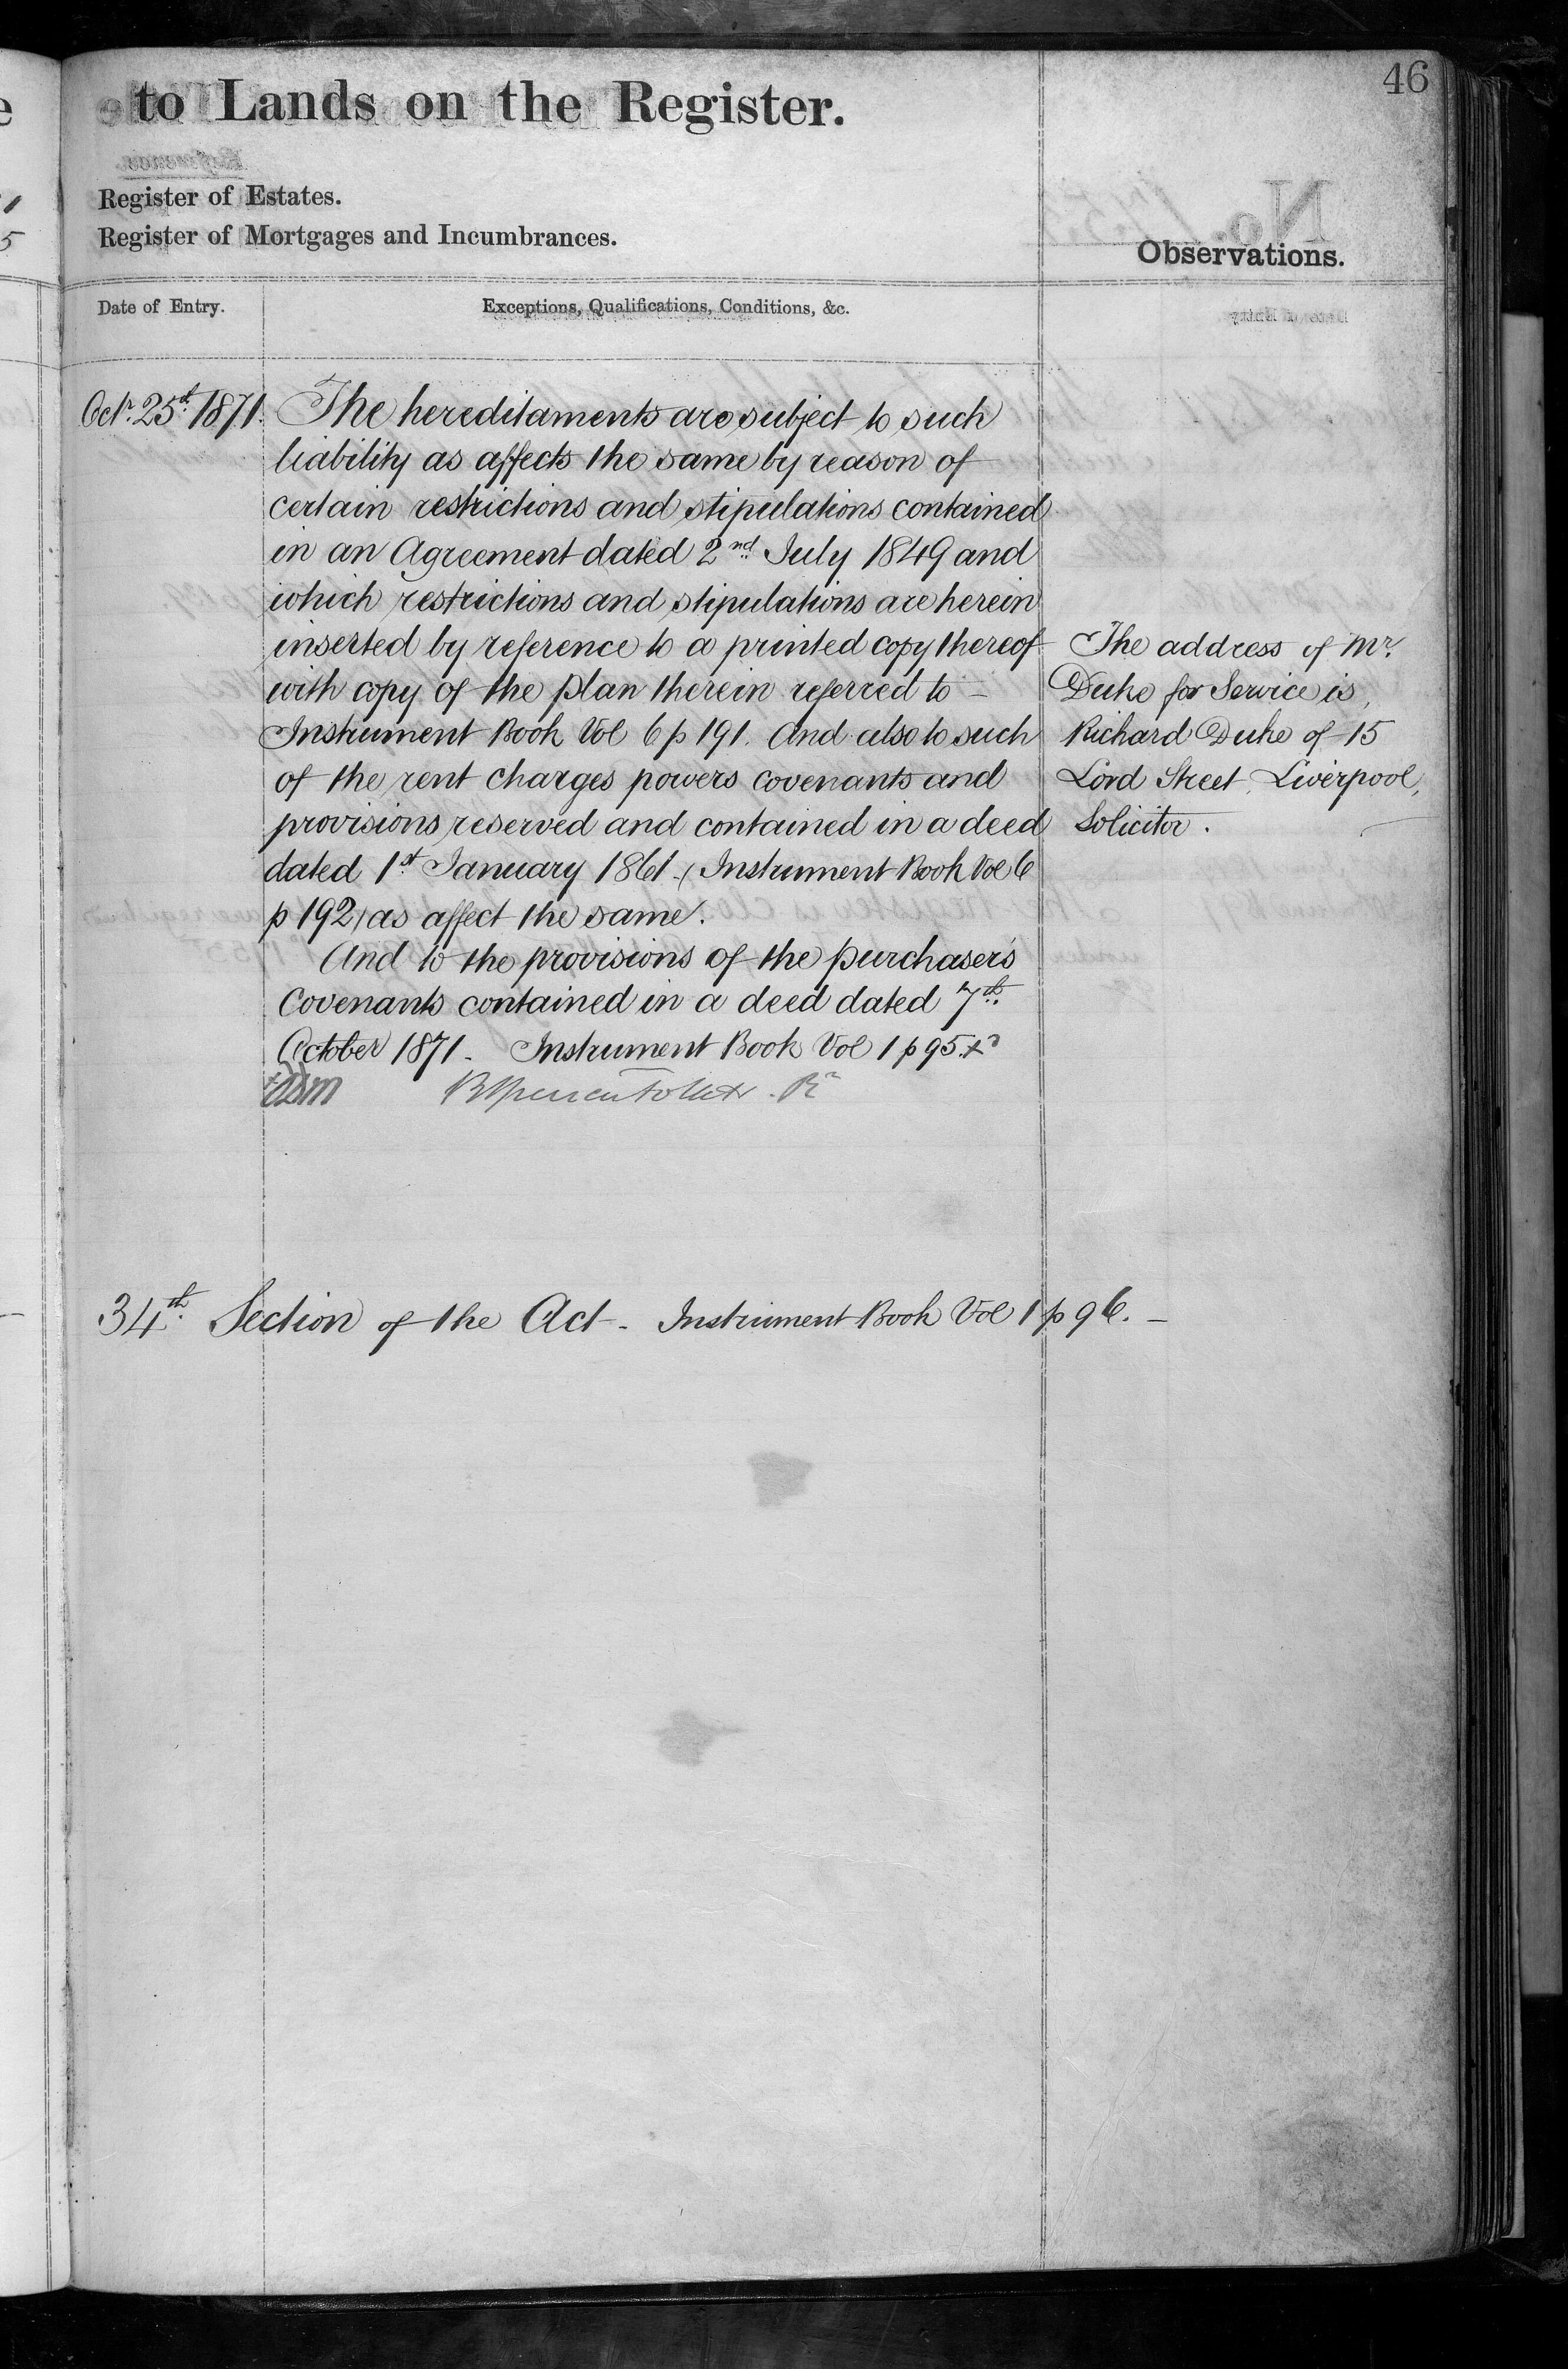 46
to Lands on the Register.
Register of Estates.
Register of Mortgages and Incumbrances.
Observations.
Date of Entry.
Exceptions, Qualifications, Conditions, &c.
Octr. 25th. 1871.
The hereditaments are subject to such
liability as affects the same by reason of
certain restrictions and stipulations contained
in an Agreement dated 2nd. July 1849 and
which restrictions and stipulations are herein
inserted by reference to a printed copy thereof
with copy of the plan therein referred to –
Instrument Book Vol 6 p 191. And also to such
of the rent charges powers covenants and
provisions reserved and contained in a deed
dated 1st. January 1861. (Instrument Book Vol 6
p 192) as affect the same.
And to the provisions of the purchaser's
Covenants contained in a deed dated 7th.
October 1871. Instrument Book Vol 1 p 95.
The address of Mr.
Duke for Service is,
Richard Duke of 15
Lord Street, Liverpool,
Solicitor.
34th. Section of the Act - Instrument Book Vol 1 p 96. –